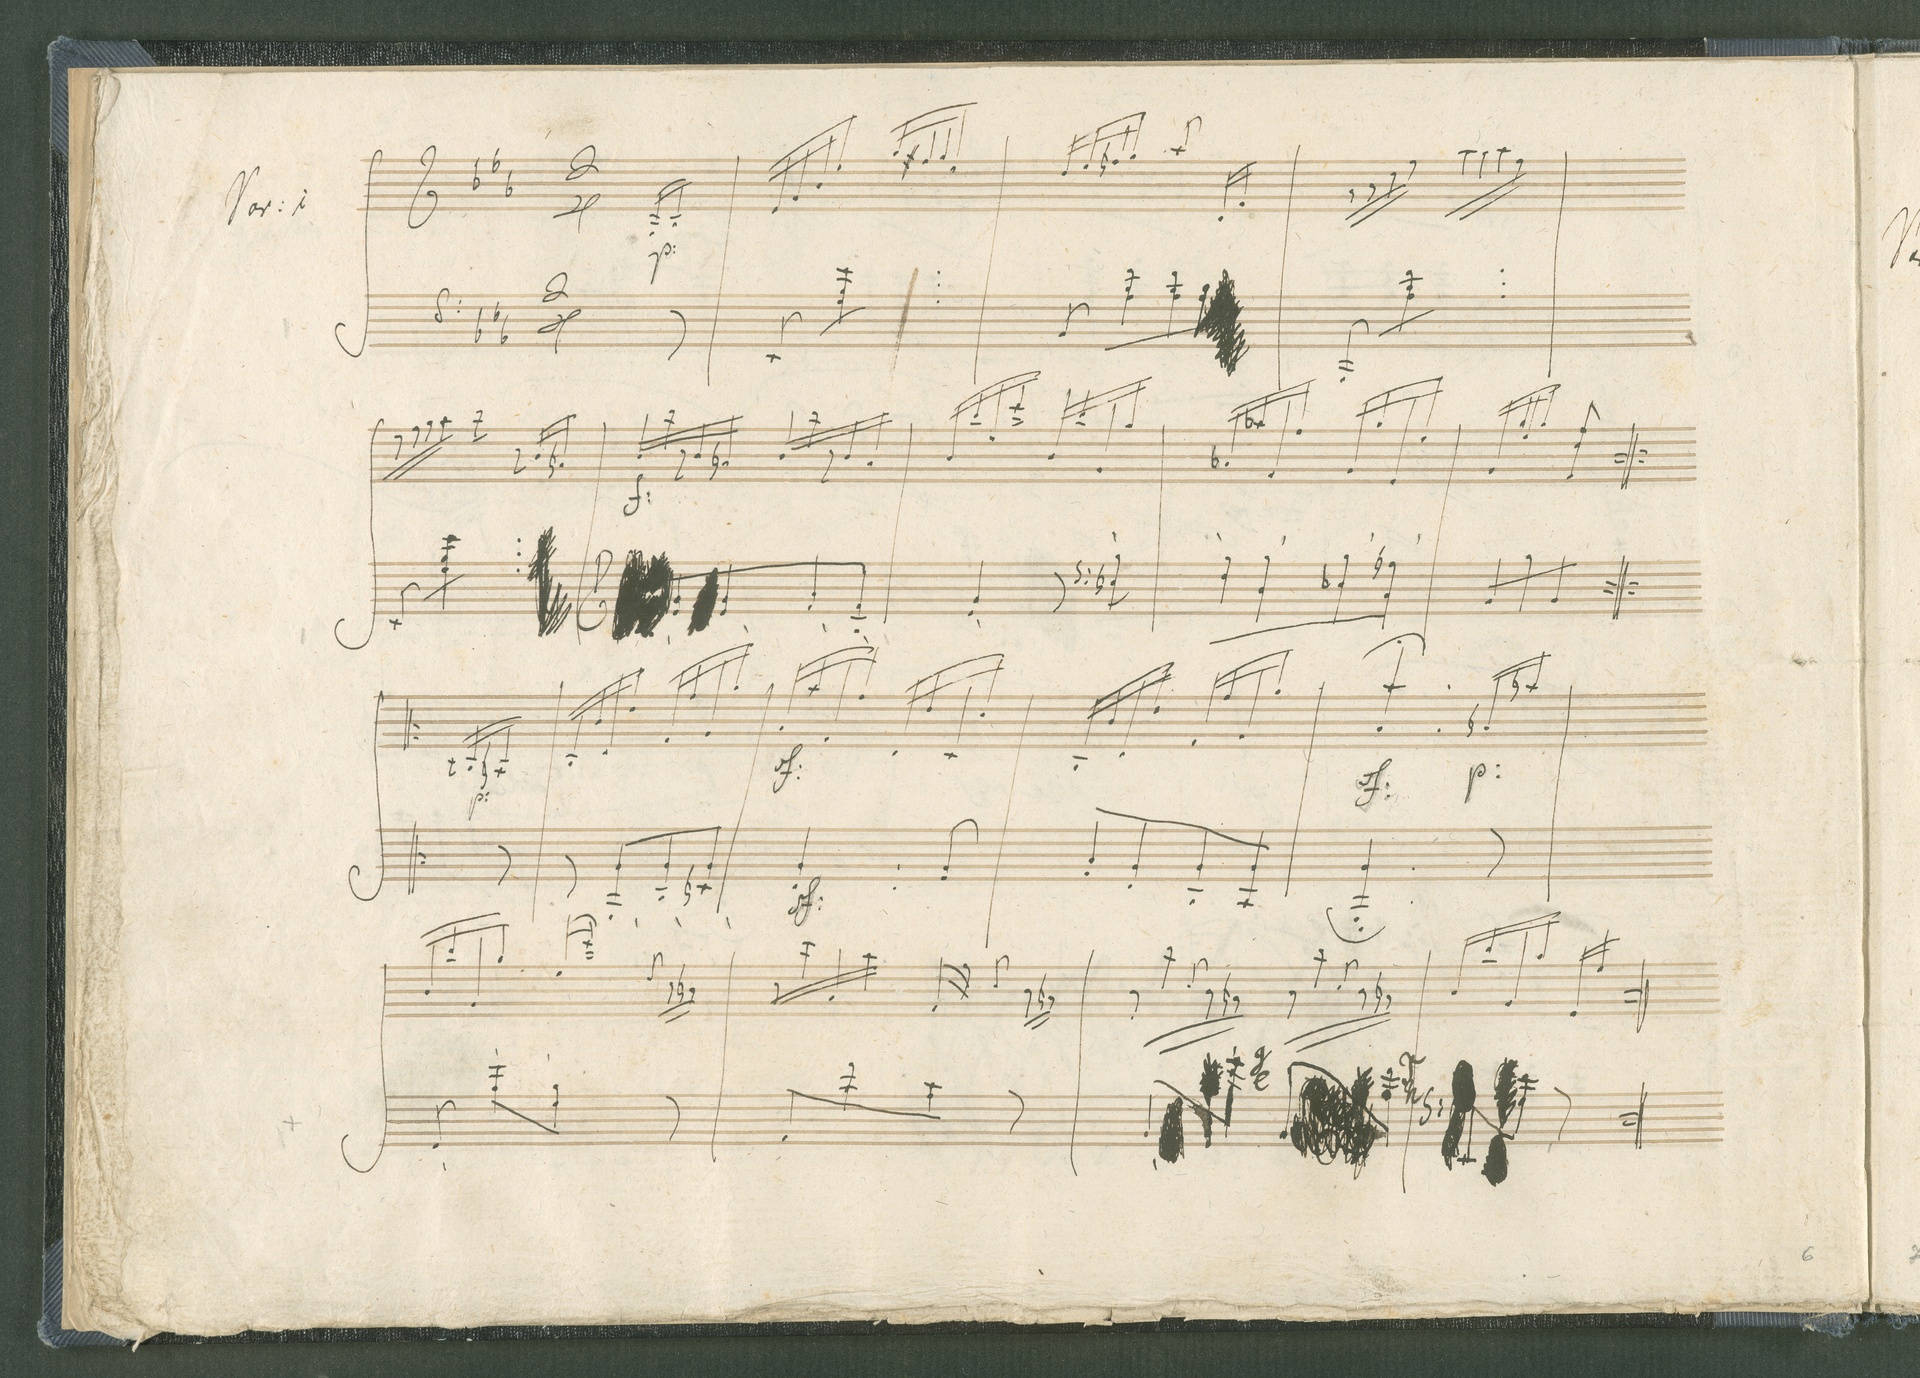 Var: i
p:
f:
p:
sf:
sf:
p:
sf:
g
e
6